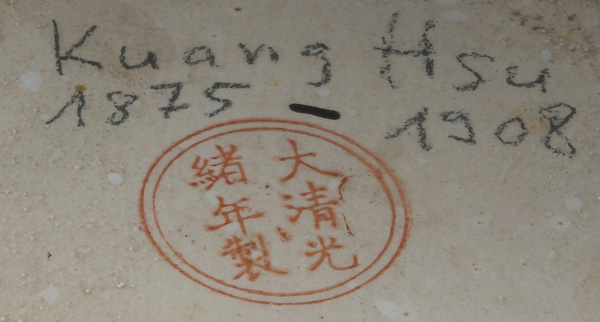 Kuang Hsu
1875 - 1908
大清光
緒年製